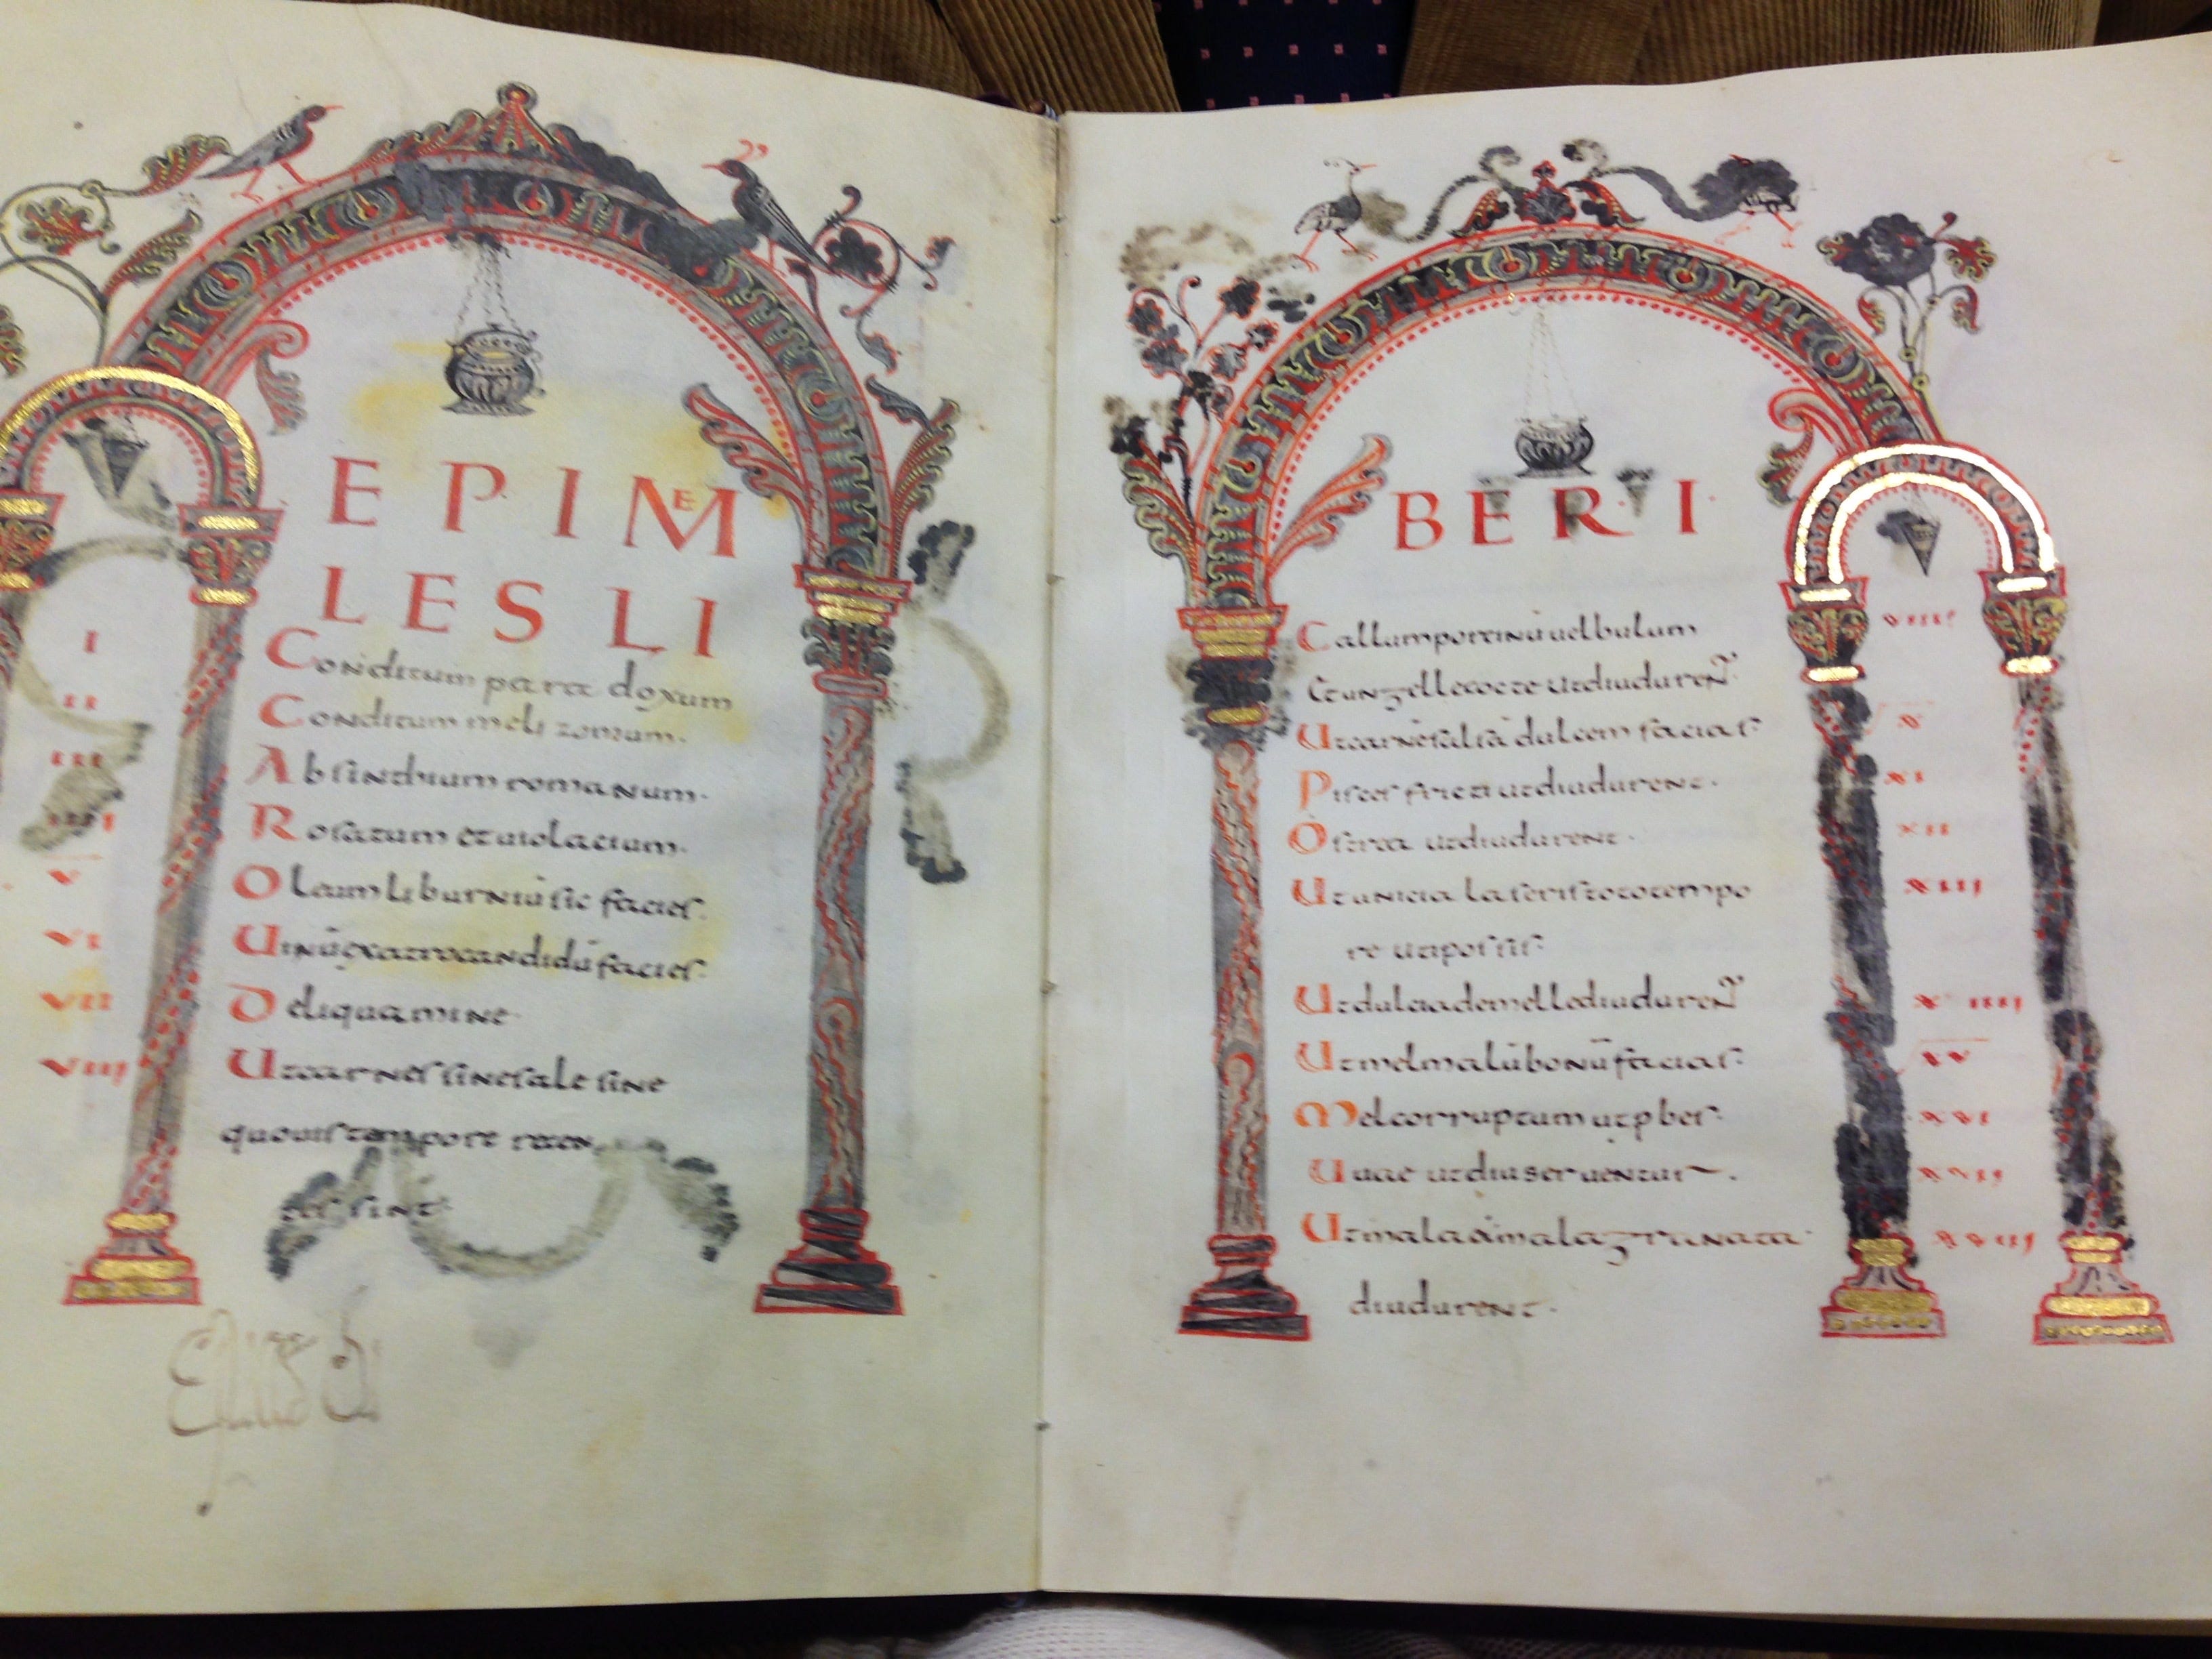 EPIMEM
LES LI
I Conditum para doxum
II Conditum meli zomum.
III Absinthium romanum.
IIII Rosatum et violacium.
V Oleum liburniū sic facies.
VI Uinū exatrocandidū facies.
VII Deliquamine.
VIII Utcarnes sinesale sine
quovis tempore recen
tes sint.
BERI
Callumporcinū uelbulum VIIII
Etungellecocte utdiudurent.
Utcarnēsalsā dulcem facias X
Pisces fricti utdiudurent. XI
Ostrea utdiudurent. XII
Utuncia laseristototempo XIII
re utipossis.
Utdulciademellediudurent XIIII
Utmelmalūbonū facias. XV
Melcorruptum utpbes. XVI
Uuae utdiuseruentur. XVII
Utmalaetmalagranata XVIII
diudurent.